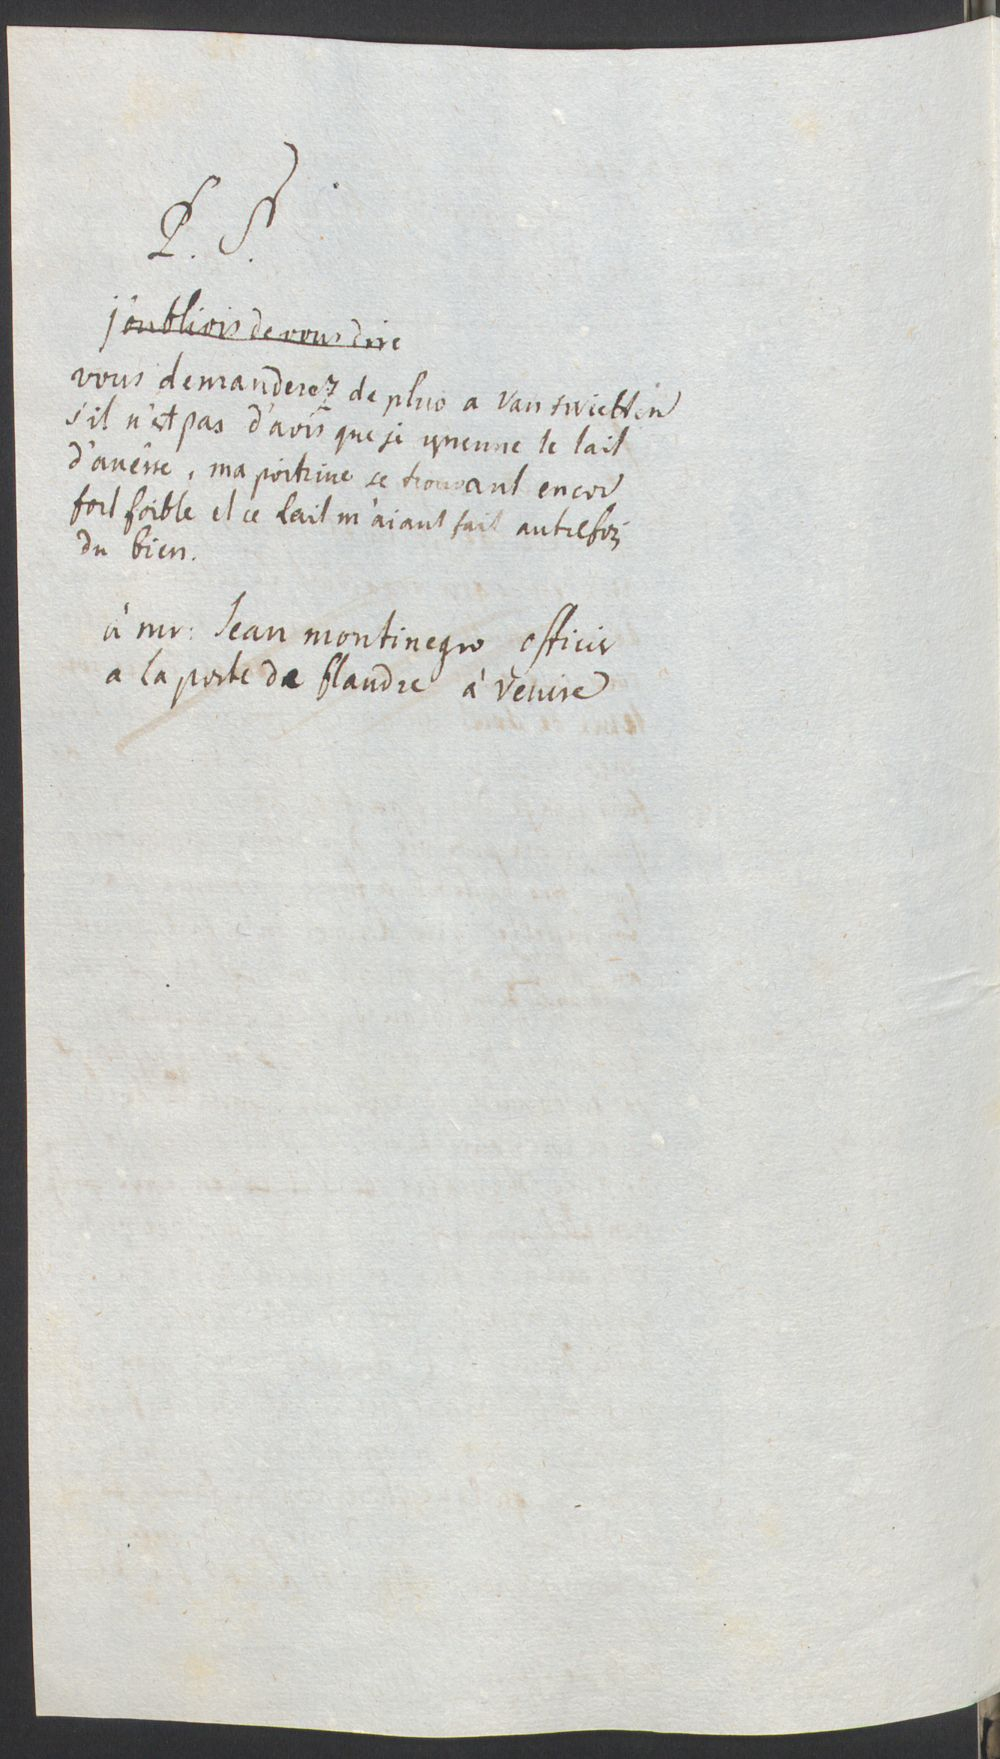 P. S.
j'oubliois de vous dire
vous demanderez de plus a Van swietten
s'il n'est pas d'avis que je prenne le lait
d'anesse, ma poitrine se trouvant encor
fort foible et ce lait m'aiant fait autrefois
du bien.
à mr: Jean montinegro officir
a la poste de flandre à Venise